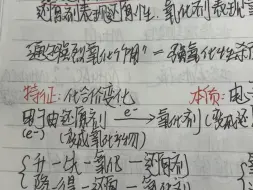 还原剂表现还原性,氧化剂表现
通过强烈氧化作用"=强氧化性杀
特征:化合价变化 本质:电子
电子由还原剂 e⁻→ 氧化剂(变成还
(e⁻) (变成氧化产物)
升-失-氧化-还原剂
降-得-还原-氧化剂